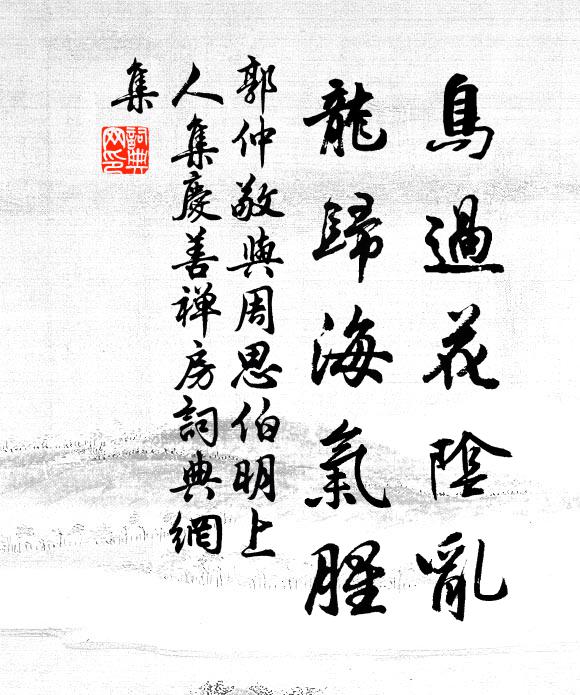 鳥過花陰亂
龍歸海氣腥
郭仲敬與周思伯明上
人集慶善禅房詞典網
集
詞典網印